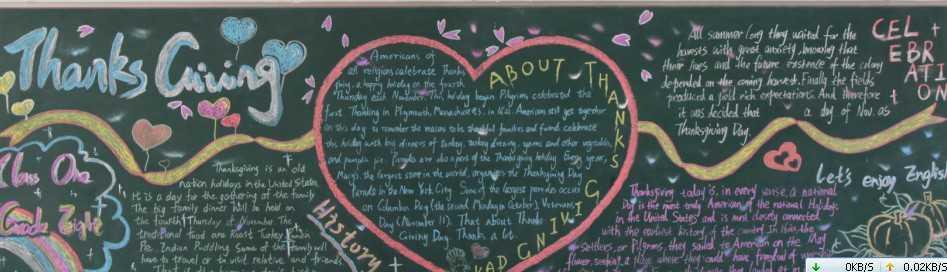 Thanks Giving
Class One
Grade Eight
Thanksgiving is an old
nation holidays in the United States
It is a day for the gathering of the family
The big family dinner will be held on
the fourth Thursday of November. The
traditional food are Roast Turkey,
Pie Indian Pudding. Some of the family will
have to travel or to visit relative and friends,
History
Americans of
all religions celebrase Thanks
giving, a happy holiday on the fourth
Thursday each November. The holiday began Pilgrims celebrated the
first Thanksing in Plymouth Massachusetts. in 1621. American still get together
on this day to remember the reasons to be
this holiday with big dinners of turkey, turkey dressing, yams and other vegetables,
and pumpkin pie. Parades are also a part of the Thanksgiving holiday. Every year,
Macy's the largest store in the world, organizes the Thanksgiving Day
Parade in the New York City. Some of the largest parades occur
on Columbus Day (the second Monday in October), Veterans
Day (November 11). That about Thanks
Giving Day. Thanks a lot.
ABOUT THANKSGIVING DAY
All summer long they waited for the
harvests with great anxiety, knowing that
their lives and the future existence of the colony
depended on the coming harvest. Finally the fields
produced a yield rich expectations. And therefore
it was decided that a day of
Thanksgiving Day.
CEL
EBR
ATI
ON
Let's enjoy English
Thanksgiving today is, in every sense, a national
Day is the most truly American of the national Holidays
in the United States and is most closely connected
with the earliest history of the country. In 1620, the
settlers, or Pilgrims, they sailed to American on the May
flower, seeking a place where they could have freedom of
0KB/S
0.02KB/S